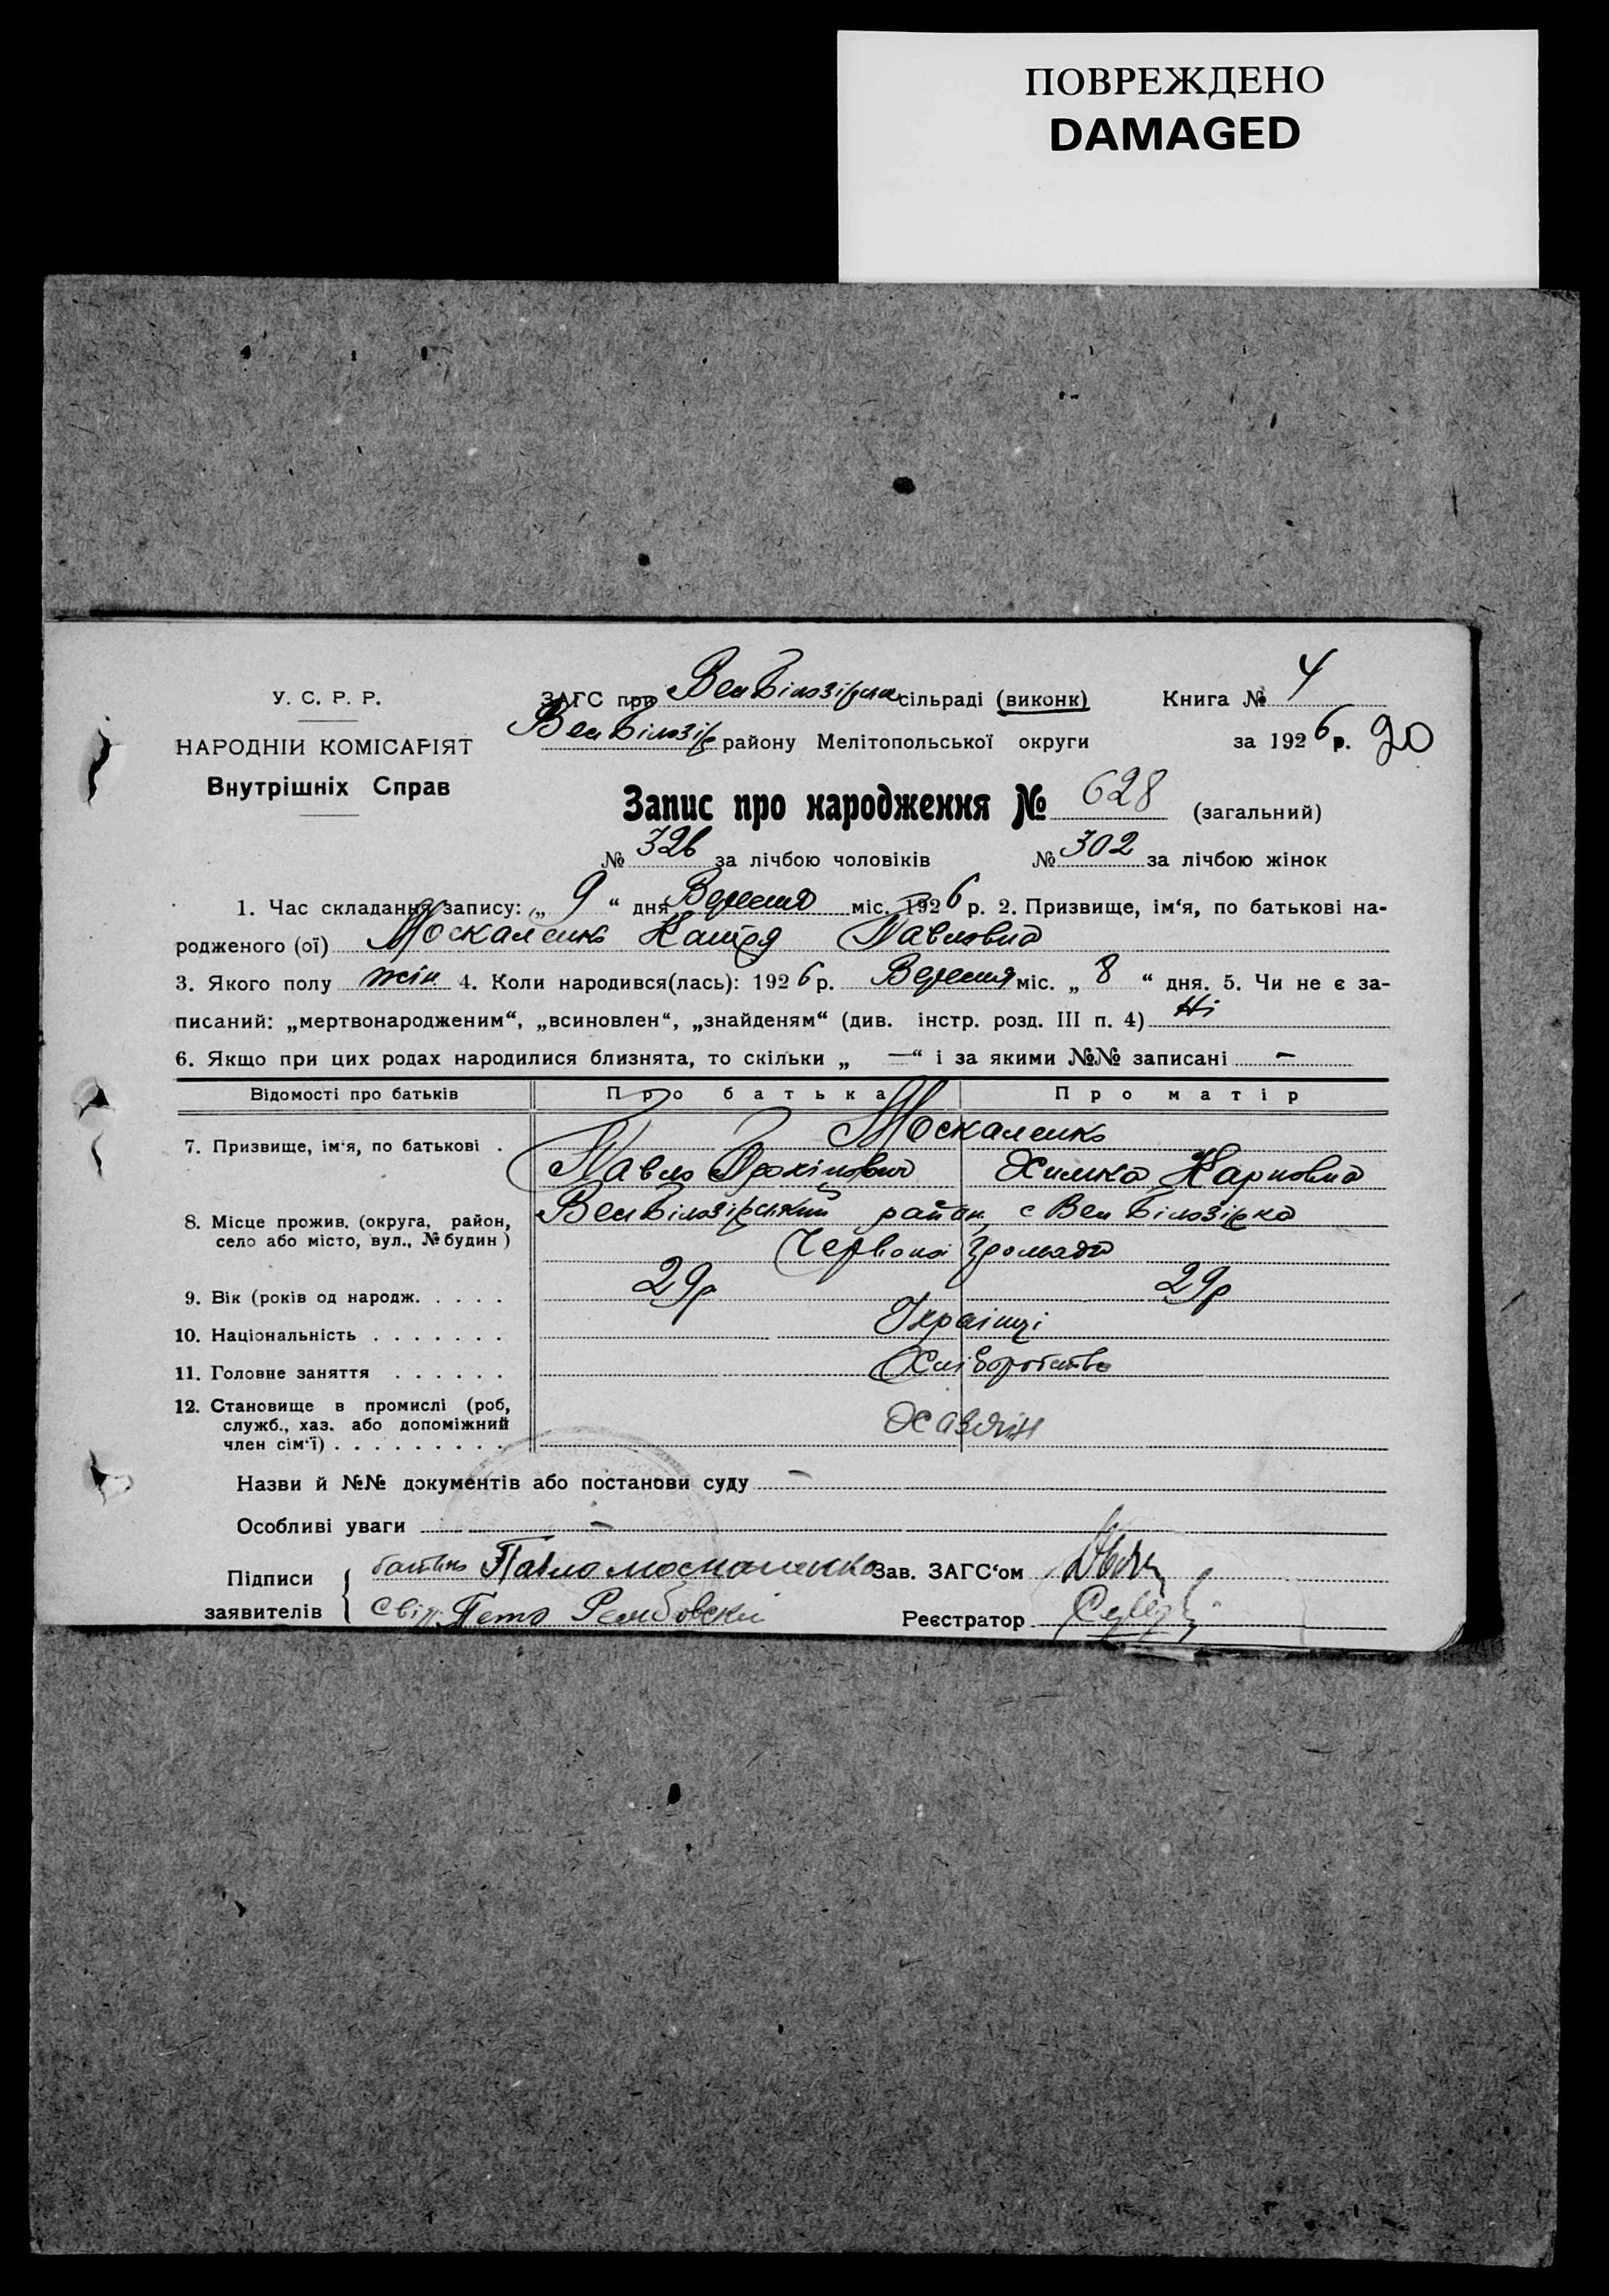 ПОВРЕЖДЕНО
DAMAGED
У. С. Р. Р.
ЗАГС при Вел Білозірськ сільраді (виконк)
Книга № 4
НАРОДНІЙ КОМІСАРІЯТ
Вел Білозір району Мелітопольської округи
за 1926 р. 90
Внутрішніх Справ
Запис про народження № 628 (загальний)
№ 326 за лічбою чоловіків № 302 за лічбою жінок
1. Час складання запису: „ 9 “ дня Вересня міс. 1926 р. 2. Призвище, ім‘я, по батькові на-
родженого (ої) Москаленко Катря Павловна
3. Якого полу жін 4. Коли народився(лась): 1926 р. Вересня міс. „ 8 “ дня. 5. Чи не є за-
писаний: „мертвонародженим“, „всиновлен“, „знайденям“ (див. інстр. розд. III п. 4) Ні
6. Якщо при цих родах народилися близнята, то скільки „ —“ і за якими №№ записані —
Відомості про батьків Про батька Про матір
7. Призвище, ім‘я, по батькові . Москаленко
Павло Химка Карповна
8. Місце прожив. (округа, район,
село або місто, вул., № будин )
Вел Білозірський район, с Вел Білозірка
Червоної Громади
9. Вік (років од народж. . . . . 29р 29р
10. Національність . . . . . . . Українці
11. Головне заняття . . . . . . Хліборобство
12. Становище в промислі (роб,
служб., хаз. або допоміжний
член сім‘ї) . . . . . . . . .
Назви й №№ документів або постанови суду —
Особливі уваги —
Підписи
заявителів
батько Павло москаленко
Зав. ЗАГС‘ом
свід. Рембовски
Реєстратор